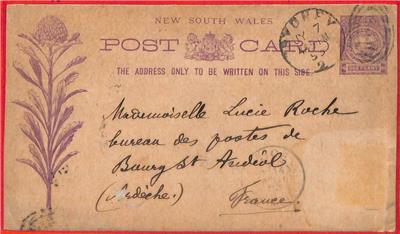 NEW SOUTH WALES
POST CARD
THE ADDRESS ONLY TO BE WRITTEN ON THIS SIDE.
SYDNEY
ONE PENNY
Mademoiselle Lucie Roche
bureau des postes de
Bourg St Andéol
(Ardèche)
France.